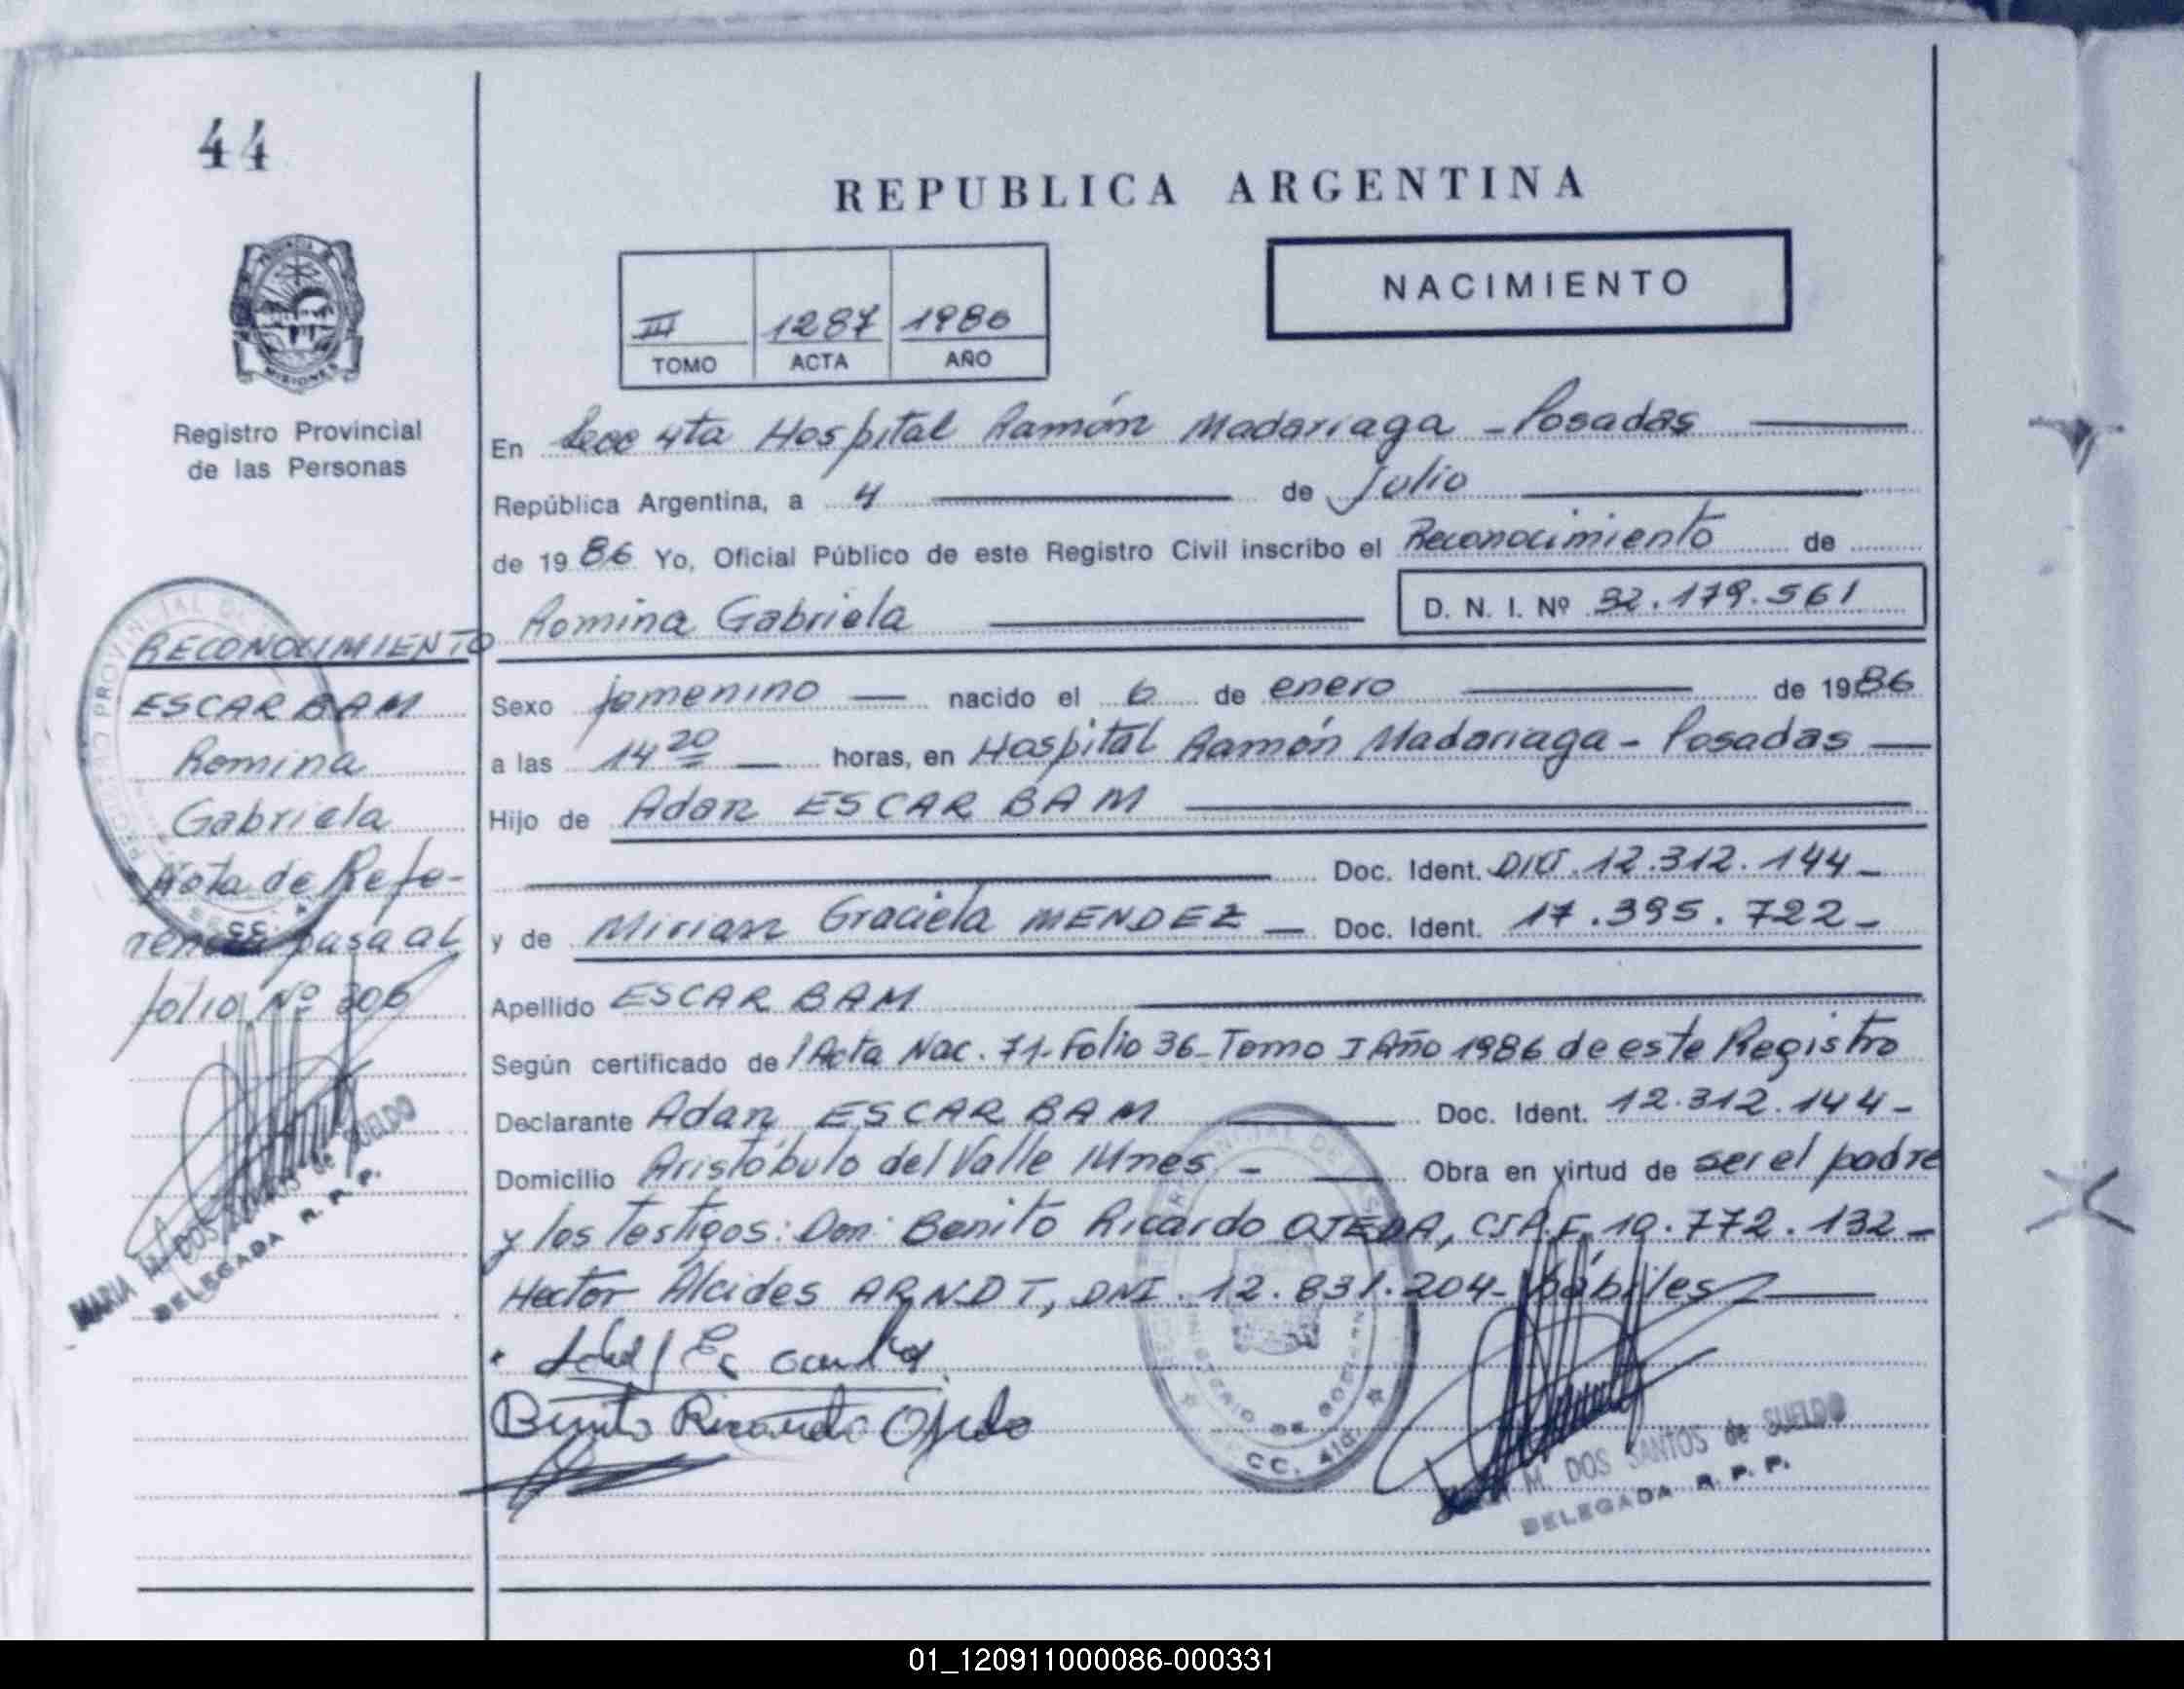 44
REPUBLICA ARGENTINA
NACIMIENTO
III 1287 1986
TOMO ACTA AÑO
PROVINCIA DE
MISIONES
Registro Provincial
de las Personas
En Secc 4ta Hospital Ramón Madariaga - Posadas
República Argentina, a 4 de Julio
de 1986 Yo, Oficial Público de este Registro Civil inscribo el Reconocimiento de
Romina Gabriela D. N. I. Nº 32.179.561
Sexo femenino nacido el 6 de enero de 1986
a las 14 20 horas, en Hospital Ramón Madariaga - Posadas
Hijo de Adan ESCARBAM
Doc. Ident. DNI. 12.312.144-
y de Mirian Graciela MENDEZ Doc. Ident. 17.395.722-
Apellido ESCARBAM
Según certificado de / Acta Nac. 71- Folio 36- Tomo I Año 1986 de este Registro
Declarante Adan ESCARBAM Doc. Ident. 12.312.144-
Domicilio Aristóbulo del Valle Mnes - Obra en virtud de ser el padre
y los testigos: Don: Benito Ricardo OJEDA, 10.772.132-
Hector Alcides ARNDT, DNI. 12.831.204- hábiles
Benito Ricardo Ojeda
M. DOS SANTOS de SUELDO
DELEGADA R. P. P.
RECONOCIMIENTO
ESCARBAM
Romina
Gabriela
Nota de Refe-
rencia pasa al
folio Nº 306
MARIA M. DOS SANTOS de SUELDO
DELEGADA R. P. P.
01_120911000086-000331